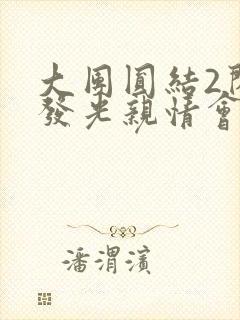 大團圓結2
發光親情會
潘渭濱